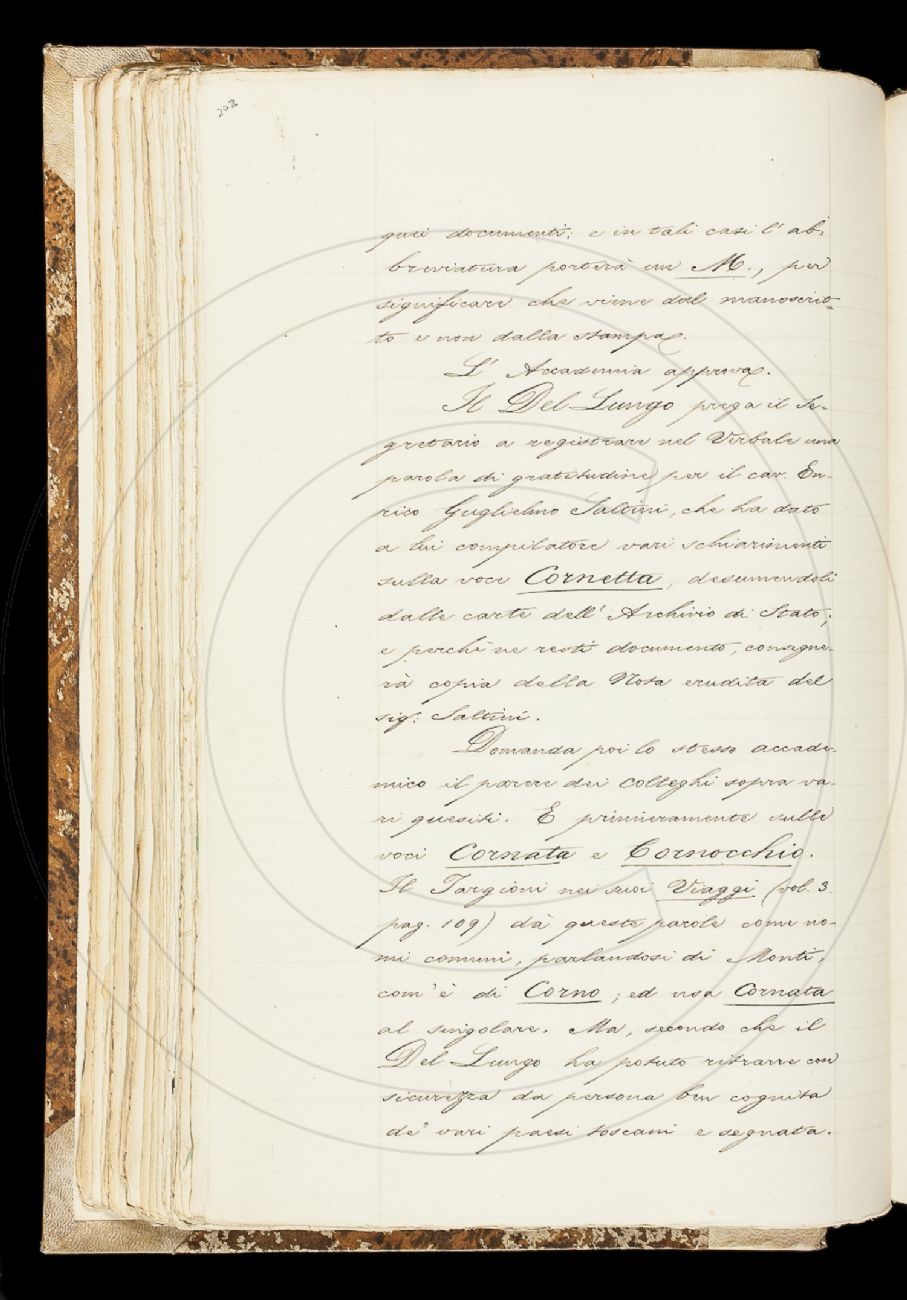 202
quei documenti; e in tali casi l'ab-
breviatura porterà un M., per
significare che viene dal manoscrit-
to e non dalla stampa.
L'Accademia approva.
Il Del Lungo prega il Se-
gretario a registrare nel Verbale una
parola di gratitudine per il cav. En-
rico Guglielmo Saltini, che ha dato
a lui compilatore vari schiarimenti
sulla voce Cornetta, desumendoli
dalle carte dell'Archivio di Stato;
e perchè ne resti documento, consegne-
rà copia della Nota erudita del
sig: Saltini.
Domanda poi lo stesso accade-
mico il parere dei Colleghi sopra va-
ri quesiti. E primieramente sulle
voci Cornata e Cornocchio.
Il Targioni nei suoi Viaggi (vol. 3.
pag. 109) dà queste parole come no-
mi comuni, parlandosi di Monti,
com'è di Corno; ed usa Cornata
al singolare. Ma, secondo che il
Del Lungo ha potuto ritrarre con
sicurezza da persona ben cognita
de' vari paesi toscani e segnata-